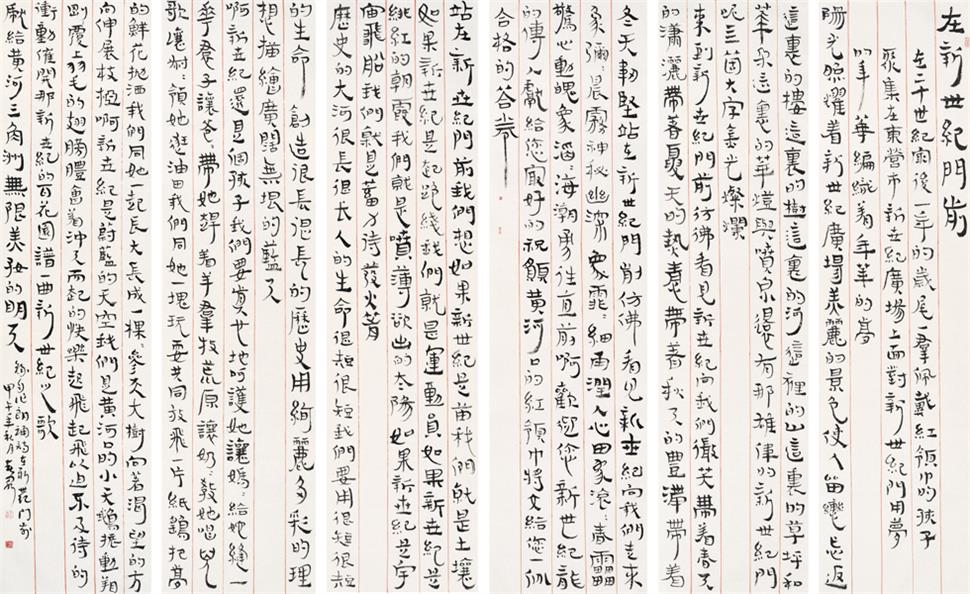 在新世紀門前
在二十世紀前後一年的歲尾一羣佩戴紅領巾的孩子
聚集在東營市新世紀廣場上面對新世紀門用夢
的年華編織着年華的夢
陽光照耀着新世紀廣場美麗的景色使人留戀忘返
這裏的樓這裏的樹這裏的河這裡的山這裏的草坪和
這裏的華燈與噴泉還有那雄偉的新世紀門
三箇大字金光燦爛
來到新世紀門前彷彿看見新世紀向我們微笑帶着春天
的瀟灑帶着夏天的熱烈帶着秋天的豐滿帶着
冬天韌堅站在新世紀門前仿佛看見新世紀向我們走來
象彌彌晨霧神秘幽深象霏霏細雨潤人心田象滾滾春雷
驚心動魄象滔滔海潮勇往直前啊歡迎您新世紀龍
的傳人獻給您最好的祝願黃河口的紅領巾將交給您一份
合格的答卷
站在新世紀門前我們想如果新世紀是苗我們就是土壤
如果新世紀是起跑綫我們就是運動員如果新世紀是
緋紅的朝霞我們就是噴薄欲出的太陽如果新世紀是宇
宙飛船我們就是蓄力待發火箭
歷史的大河很長很長人的生命很短很短我們要用很短很短
的生命創造很長很長的歷史用絢麗多彩的理
想描繪廣闊無垠的藍天
啊新世紀還是個孩子我們要地呵護她讓媽媽給她縫一
裙子讓爸爸帶她趕着羊羣牧荒原讓奶奶教她唱兒
歌讓領她逛油田我們同她一塊玩耍共同放飛一片紙鷂把夢
的鮮花地洒我們同她一起長大長成一棵參天大樹向着渴望的方
向伸展枝椏啊新世紀是蔚藍的天空我們是黃河口的小天鵝振動翔
剛覆羽毛的翅膀體會着沖天而起的快樂起飛起飛以迫不及待的
衝動催開那新世紀的百花園譜一曲新世紀之歌
獻給黃河三角洲無限美好的明天
甲午年秋月